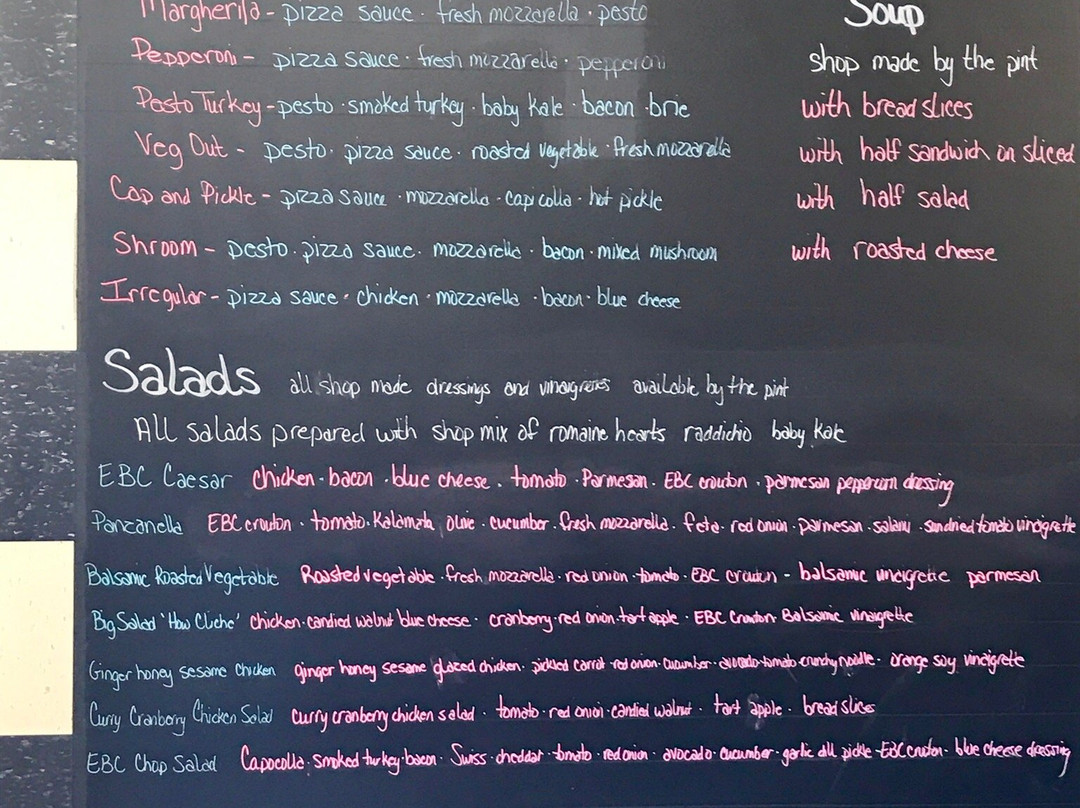 Margherita - pizza sauce · fresh mozzarella · pesto
Pepperoni - pizza sauce · fresh mozzarella · pepperoni
Pesto Turkey - pesto · smoked turkey · baby kale · bacon · brie
Veg Out - pesto · pizza sauce · roasted vegetable · fresh mozzarella
Cap and Pickle - pizza sauce · mozzarella · capicolla · hot pickle
Shroom - pesto · pizza sauce · mozzarella · bacon · mixed mushroom
Irregular - pizza sauce · chicken · mozzarella · bacon · blue cheese
Soup
shop made by the pint
with bread slices
with half sandwich on sliced
with half salad
with roasted cheese
Salads all shop made dressings and vinaigrettes available by the pint
All salads prepared with shop mix of romaine hearts raddichio baby kale
EBC Caesar chicken · bacon · blue cheese · tomato · Parmesan · EBC crouton · parmesan peppercorn dressing
Panzanella EBC crouton · tomato · Kalamata olive · cucumber · fresh mozzarella · feta · red onion · parmesan · salami · sundried tomato vinaigrette
Balsamic Roasted Vegetable Roasted vegetable · fresh mozzarella · red onion · tomato · EBC crouton - balsamic vinaigrette parmesan
Big Salad 'How Cliche' chicken · candied walnut blue cheese · cranberry · red onion · tart apple · EBC Crouton · Balsamic vinaigrette
Ginger honey sesame chicken ginger honey sesame glazed chicken · pickled carrot · red onion · cucumber · avocado · tomato · crunchy noodle · orange soy vinaigrette
Curry Cranberry Chicken Salad curry cranberry chicken salad · tomato · red onion · candied walnut · tart apple · bread slices
EBC Chop Salad Capocolla · smoked turkey · bacon · Swiss · cheddar · tomato · red onion · avocado · cucumber · garlic dill pickle · EBC crouton · blue cheese dressing